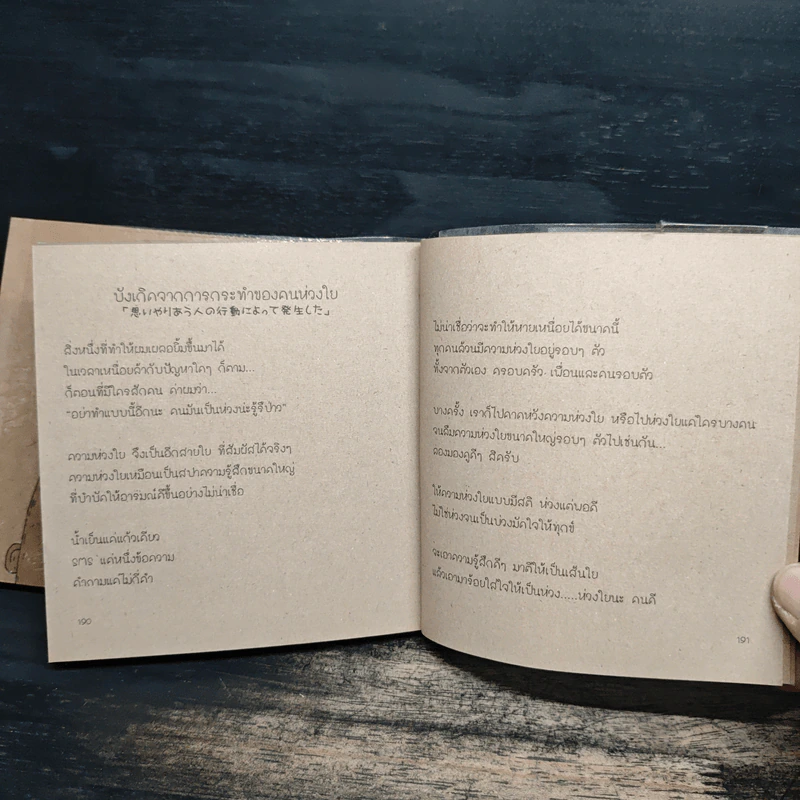 บังเกิดจากการกระทำของคนห่วงใย
「思いやりあう人の行動によって発生した」
สิ่งหนึ่งที่ทำให้ผมเผลอยิ้มขึ้นมาได้
ในเวลาเหนื่อยล้ากับปัญหาใดๆ ก็ตาม...
ก็ตอนที่มีใครสักคน ด่าผมว่า...
"อย่าทำแบบนี้อีกนะ คนมันเป็นห่วงน่ะรู้รึป่าว"
ความห่วงใย จึงเป็นอีกสายใย ที่สัมผัสได้จริงๆ
ความห่วงใยเหมือนเป็นสปาความรู้สึกขนาดใหญ่
ที่บำบัดให้อารมณ์ดีขึ้นอย่างไม่น่าเชื่อ
น้ำเย็นแค่แก้วเดียว
sms แค่หนึ่งข้อความ
คำถามแค่ไม่กี่คำ
190
ไม่น่าเชื่อว่าจะทำให้หายเหนื่อยได้ขนาดนี้
ทุกคนล้วนมีความห่วงใยอยู่รอบๆ ตัว
ทั้งจากตัวเอง ครอบครัว เพื่อนและคนรอบตัว
บางครั้ง เราก็ไปคาดหวังความห่วงใย หรือไปห่วงใยแค่ใครบางคน
จนลืมความห่วงใยขนาดใหญ่รอบๆ ตัวไปเช่นกัน...
ลองมองดูดีๆ สิครับ
ให้ความห่วงใยแบบมีสติ ห่วงแต่พอดี
ไม่ใช่ห่วงจนเป็นบ่วงมัดใจให้ทุกข์
จะเอาความรู้สึกดีๆ มาตีให้เป็นเส้นใย
แล้วเอามาร้อยใส่ใจให้เป็นห่วง.....ห่วงใยนะ คนดี
191